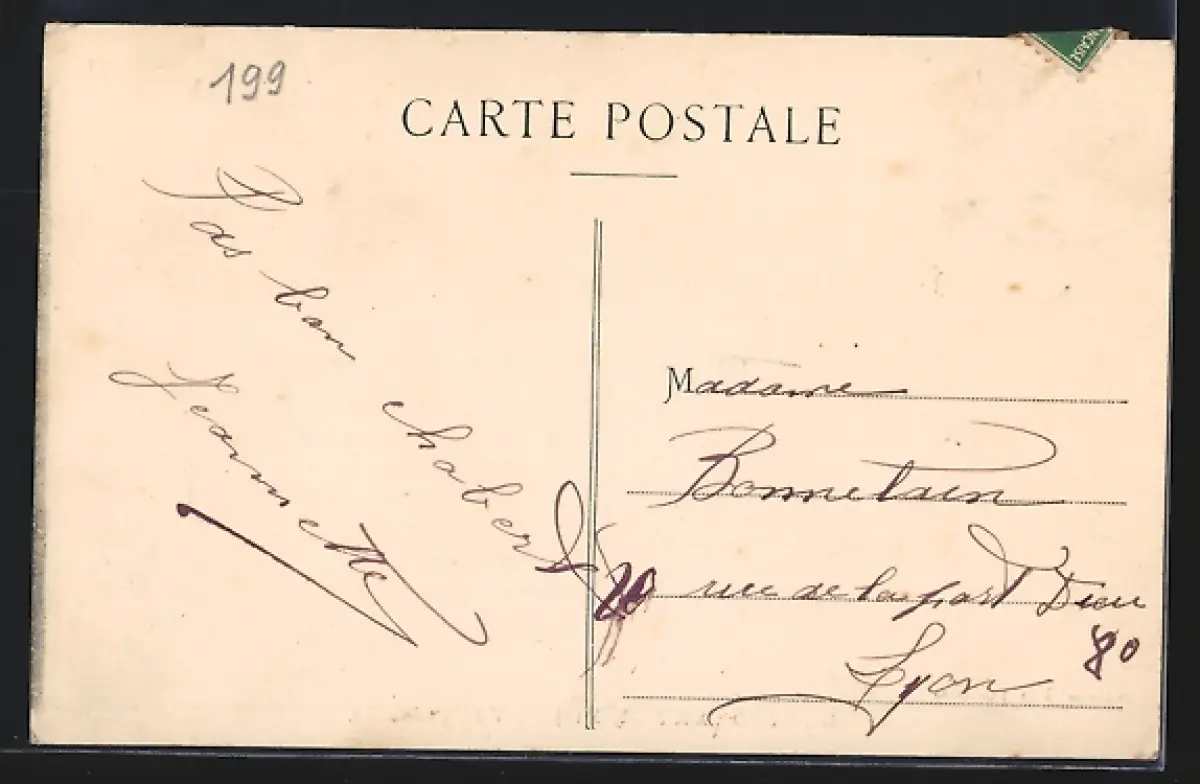 199
CARTE POSTALE
Pas bon chabert
Jeannette
Madame
Bonnetain
rue de la part Dieu
80
Lyon